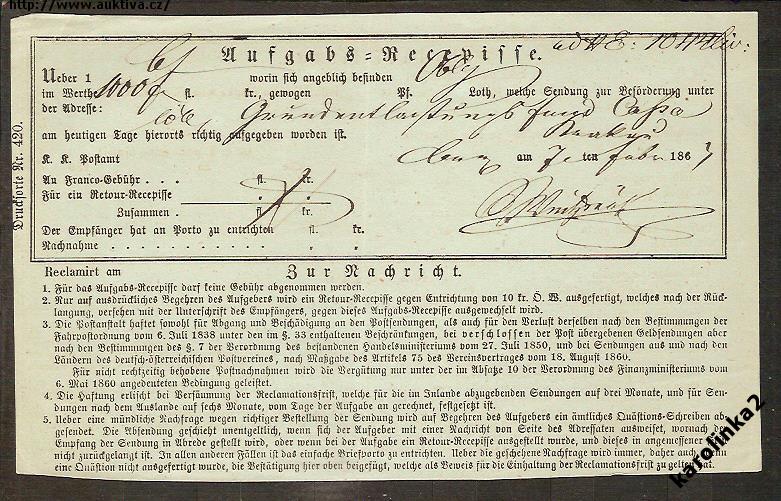 http://www.auktiva.cz/
Aufgabs=Recepisse.
Ueber 1 worin sich angeblich befinden
im Werthe 1000 f fl. kr., gewogen Pf. Loth, welche Sendung zur Beförderung unter
der Adresse: löbl. Grundentlastungs fond Cassa
Krakau
am heutigen Tage hierorts richtig aufgegeben worden ist.
K. K. Postamt am 7. ten 186
An Franco-Gebühr . . . fl. kr.
Für ein Retour-Recepisse " "
Zusammen . fl. kr.
Der Empfänger hat an Porto zu entrichten . fl. kr.
Nachnahme . . . . . . " "
Druckforte Nr. 420.
Reclamirt am
Zur Nachricht.
1. Für das Aufgabs-Recepisse darf keine Gebühr abgenommen werden.
2. Nur auf ausdrückliches Begehren des Aufgebers wird ein Retour-Recepisse gegen Entrichtung von 10 kr. Ö. W. ausgefertigt, welches nach der Rück-
langung, versehen mit der Unterschrift des Empfängers, gegen dieses Aufgabs-Recepisse ausgewechselt wird.
3. Die Postanstalt haftet sowohl für Abgang und Beschädigung an den Postsendungen, als auch für den Verlust derselben nach den Bestimmungen der
Fahrpostordnung vom 6. Juli 1838 unter den im §. 33 enthaltenen Beschränkungen, bei verschlossen der Post übergebenen Geldsendungen aber
nach den Bestimmungen des §. 7 der Verordnung des bestandenen Handelsministeriums vom 27. Juli 1850, und bei Sendungen aus und nach den
Ländern des deutsch-österreichischen Postvereines, nach Maßgabe des Artikels 75 des Vereinsvertrages vom 18. August 1860.
Für nicht rechtzeitig behobene Postnachnahmen wird die Vergütung nur unter der im Absatze 10 der Verordnung des Finanzministeriums vom
6. Mai 1860 angedeuteten Bedingung geleistet.
4. Die Haftung erlischt bei Versäumung der Reclamationsfrist, welche für die im Inlande abzugebenden Sendungen auf drei Monate, und für Sen-
dungen nach dem Auslande auf sechs Monate, vom Tage der Aufgabe an gerechnet, festgesetzt ist.
5. Ueber eine mündliche Nachfrage wegen richtiger Bestellung der Sendung wird auf Begehren des Aufgebers ein ämtliches Quästions-Schreiben ab-
gesendet. Die Absendung geschieht unentgeltlich, wenn sich der Aufgeber mit einer Nachricht von Seite des Adressaten ausweiset, wornach der
Empfang der Sendung in Abrede gestellt wird, oder wenn bei der Aufgabe ein Retour-Recepisse ausgestellt wurde, und dieses in angemessener
nicht zurückgelangt ist. In allen anderen Fällen ist das einfache Briefporto zu entrichten. Ueber die geschehene Nachfrage wird immer, daher auch wenn
eine Quästion nicht ausgefertigt wurde, die Bestätigung hier oben beigefügt, welche als Beweis für die Einhaltung der Reclamationsfrist zu gelten hat.
karolinka2